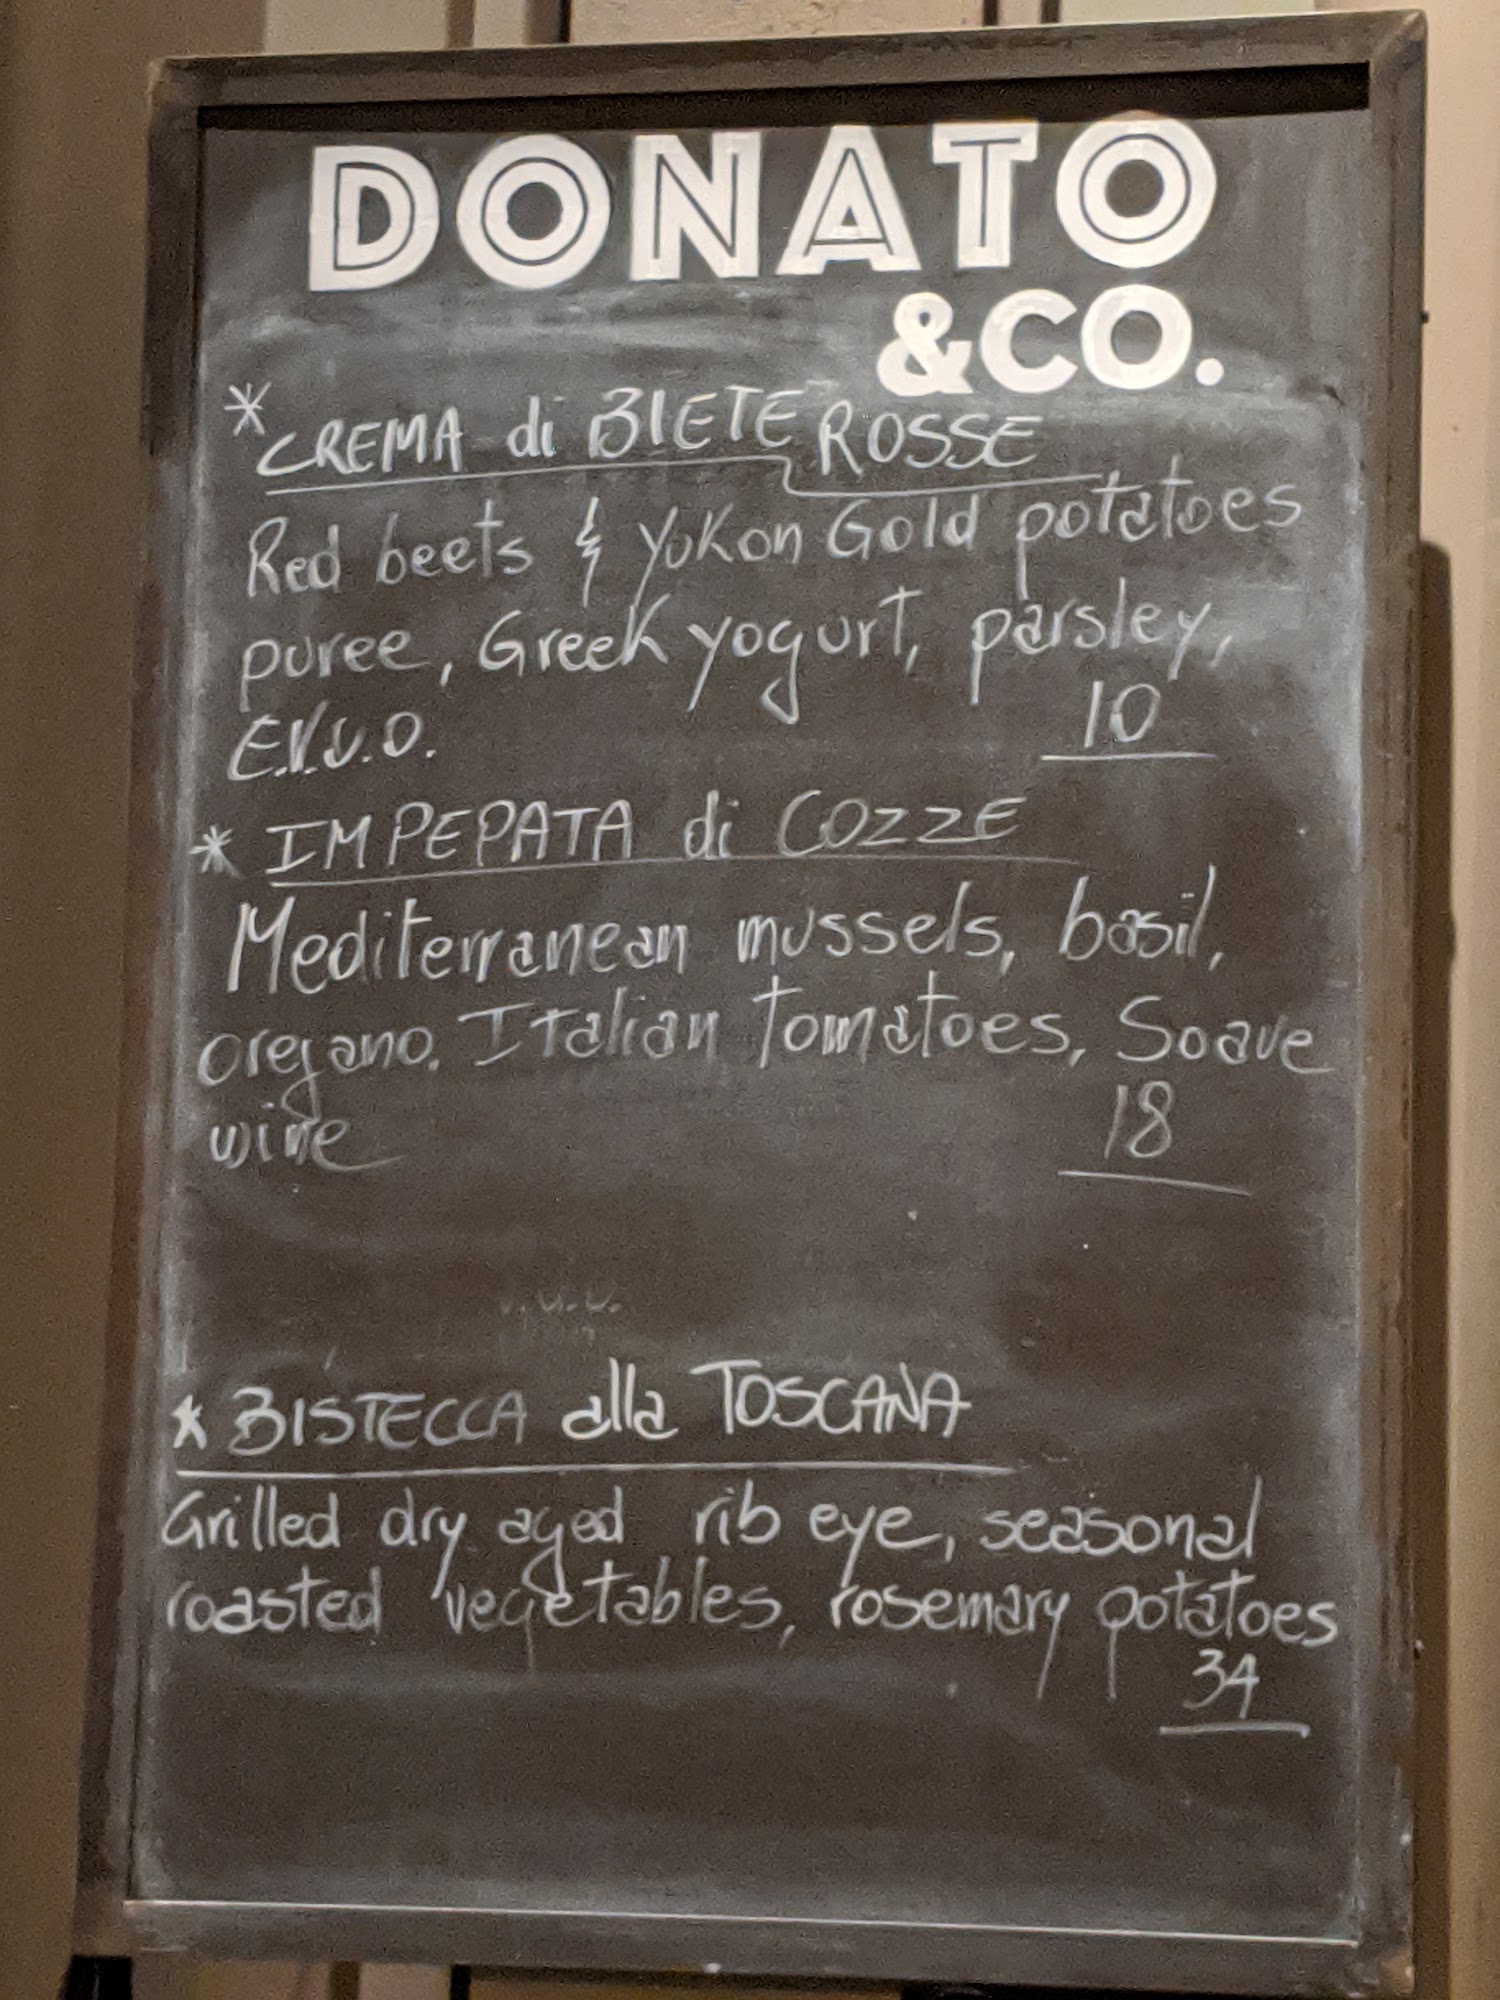 DONATO
&CO.
* CREMA di BIETE ROSSE
Red beets & Yukon Gold potatoes
puree, Greek yogurt, parsley,
E.V.O.O.
10
* IMPEPATA di COZZE
Mediterranean mussels, basil,
oregano. Italian tomatoes, Soave
wine
18
* BISTECCA alla TOSCANA
Grilled dry aged rib eye, seasonal
roasted vegetables, rosemary potatoes
34